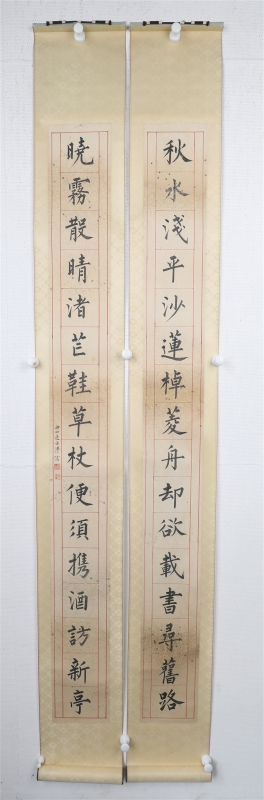 秋水淺平沙蓮棹菱舟却欲載書尋舊路
曉霧散晴渚芒鞋草杖便須携酒訪新亭